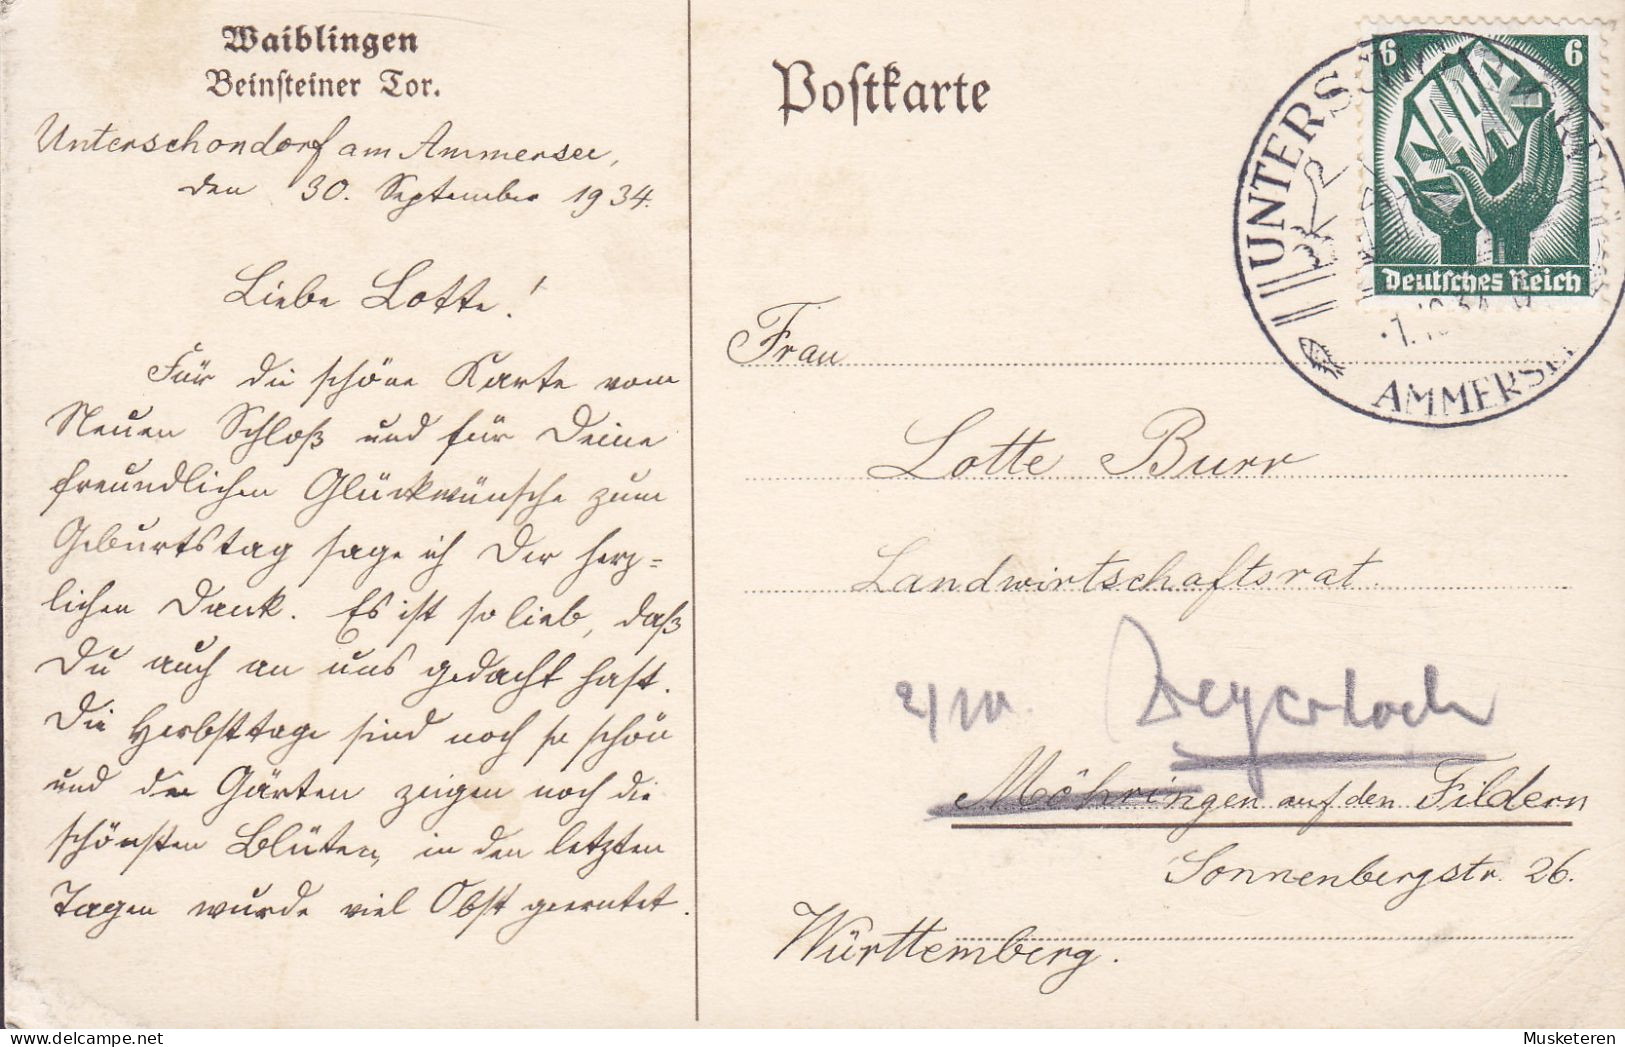 Waiblingen
Beinsteiner Tor.
Unterschondorf am Ammersee,
den 30. September 1934.
Liebe Lotte!
Für die schöne Karte vom
Neuen Schloß und für Deine
freundlichen Glückwünsche zum
Geburtstag sage ich Dir herz=
lichen Dank. Es ist so lieb, daß
Du auch an uns gedacht hast.
Die Herbsttage sind noch so schön
und die Gärten zeigen noch die
schönsten Blüten, in den letzten
Tagen wurde viel Obst geerntet.
Postkarte
6 6
SAAR
Deutsches Reich
UNTERS
1.10.34
AMMERSEE
Frau
Lotte Burr
Landwirtschaftsrat.
2/10.
Möhringen auf den Fildern
Sonnenbergstr. 26.
Württemberg.
Musketeren